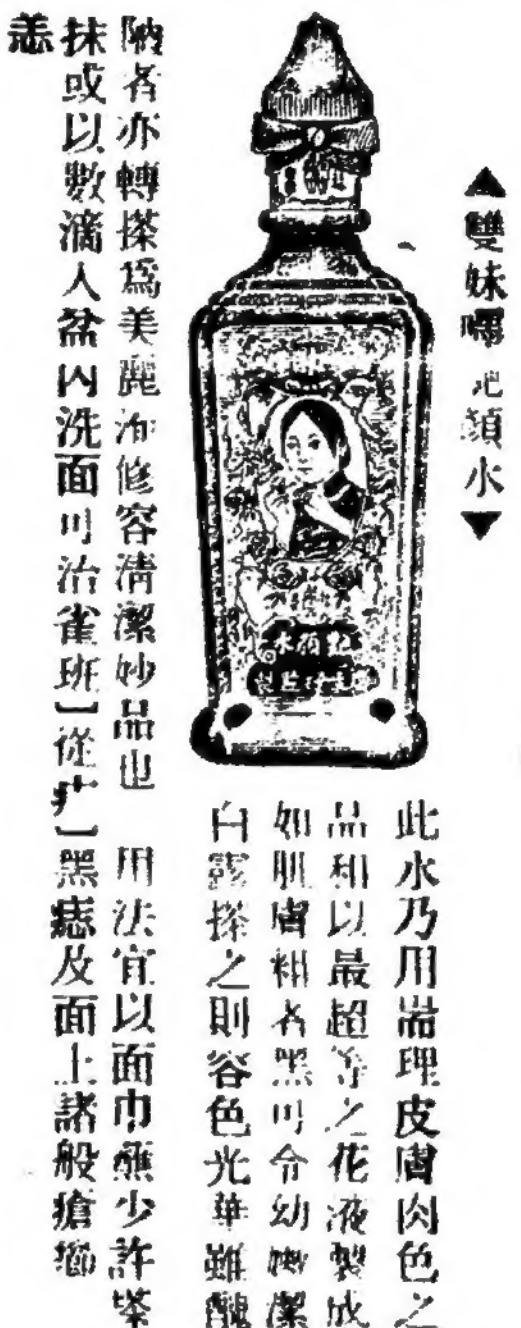 ▲雙妹嚜艷顏水▼
此水乃用耑理皮膚肉色之
品和以最超等之花液製成
如肌膚粗者黑可令幼嫩潔
白露搽之則容色光華雖醜
陋者亦轉搽爲美麗洵修容清潔妙品也　用法宜以面巾蘸少許搽
抹或以數滴入盆内洗面可治雀班﹂從疒﹂黑痣及面上諸般瘡癤
恙
水顏艷